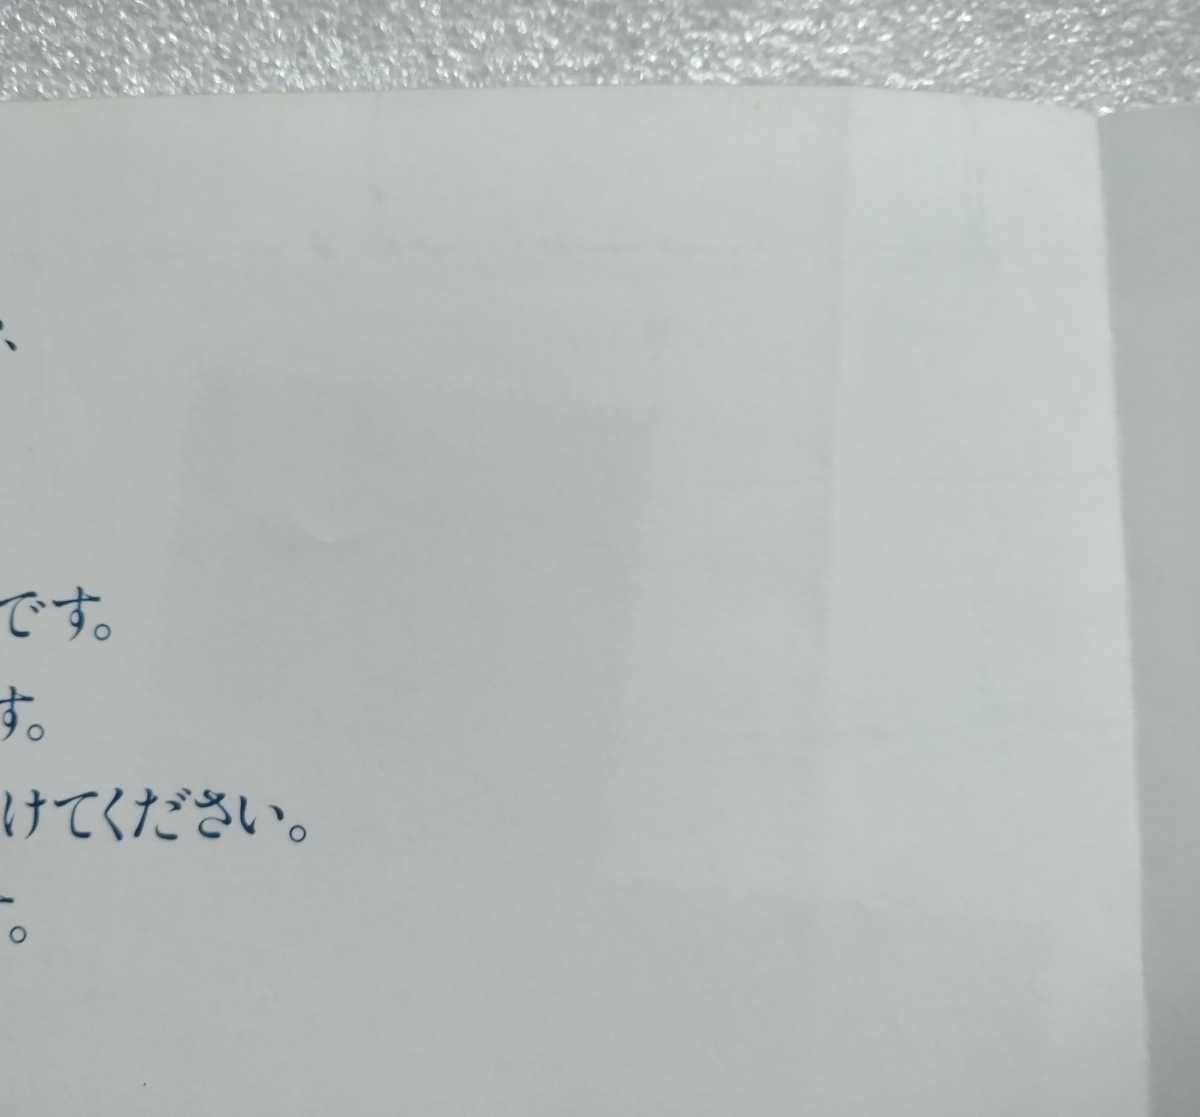 、
です。
す。
けてください。
す。